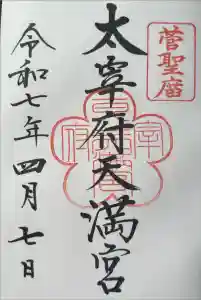 菅聖廟
太宰府天満宮
令和七年四月七日